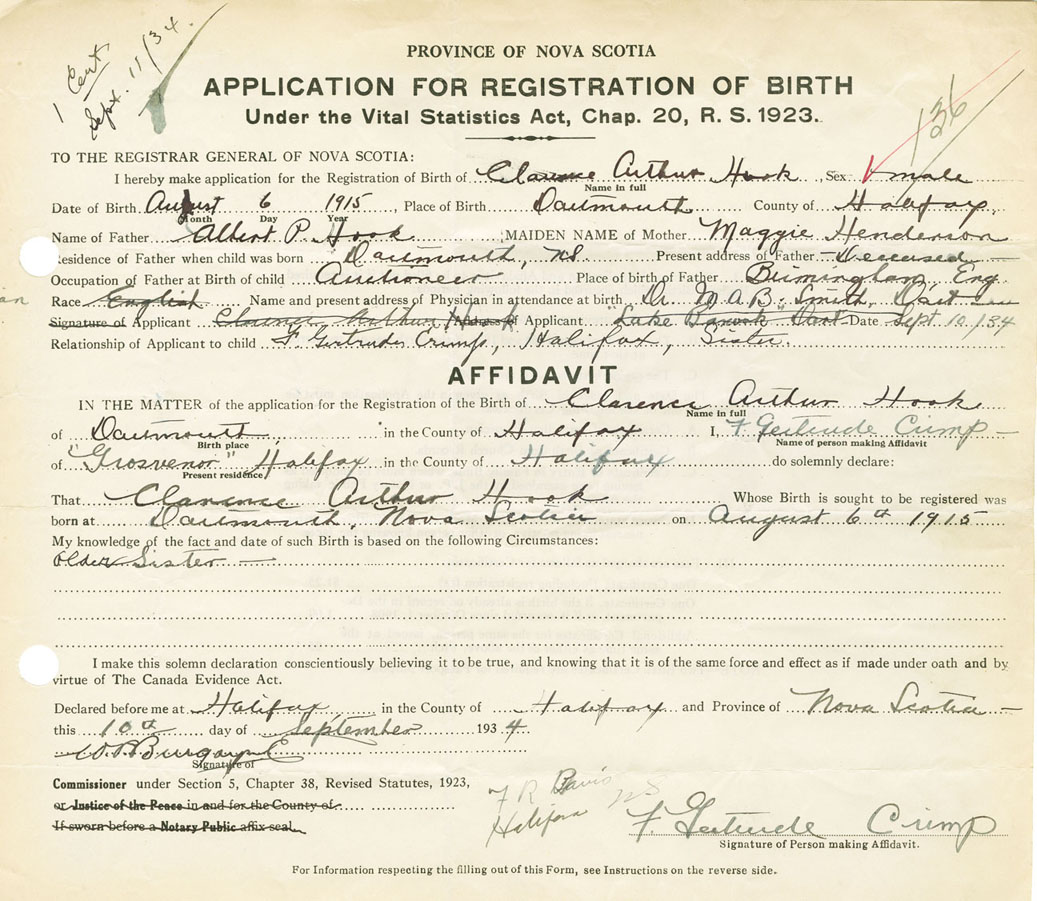 1 Cert
Sept. 11/34.
PROVINCE OF NOVA SCOTIA
APPLICATION FOR REGISTRATION OF BIRTH
Under the Vital Statistics Act, Chap. 20, R. S. 1923.
136
TO THE REGISTRAR GENERAL OF NOVA SCOTIA:
I hereby make application for the Registration of Birth of Clarence Arthur Hook, Sex male
Name in full
Date of Birth August 6 1915, Place of Birth Dartmouth County of Halifax
Month Day Year
Name of Father Albert P. Hook MAIDEN NAME of Mother Maggie Henderson
esidence of Father when child was born Dartmouth, NS. Present address of Father Deceased
Occupation of Father at Birth of child Auctioneer Place of birth of Father Birmingham, Eng
Race English Name and present address of Physician in attendance at birth Dr. M A B. Smith, Dart
Signature of Applicant Clarence Arthur Hook Address of Applicant "Lake Banook" Dart Date Sept 10/34
Relationship of Applicant to child F. Gertrude Crimp, Halifax, Sister.
AFFIDAVIT
IN THE MATTER of the application for the Registration of the Birth of Clarence Arthur Hook
Name in full
of Dartmouth in the County of Halifax I, F Gertrude Crimp
Birth place Name of person making Affidavit
of "Grosvenor" Halifax in the County of Halifax do solemnly declare:
Present residence,
That Clarence Arthur Hook Whose Birth is sought to be registered was
born at Dartmouth, Nova Scotia on August 6th 1915
My knowledge of the fact and date of such Birth is based on the following Circumstances:
Older Sister
I make this solemn declaration conscientiously believing it to be true, and knowing that it is of the same force and effect as if made under oath and by
virtue of The Canada Evidence Act.
Declared before me at Halifax in the County of Halifax and Province of Nova Scotia
this 10th day of September 1934.
Signature of
Commissioner under Section 5, Chapter 38, Revised Statutes, 1923,
or Justice of the Peace in and for the County of
If sworn before a Notary Public affix seal.
F R Davis
Halifax NS
F. Gertrude Crimp
Signature of Person making Affidavit.
For Information respecting the filling out of this Form, see Instructions on the reverse side.